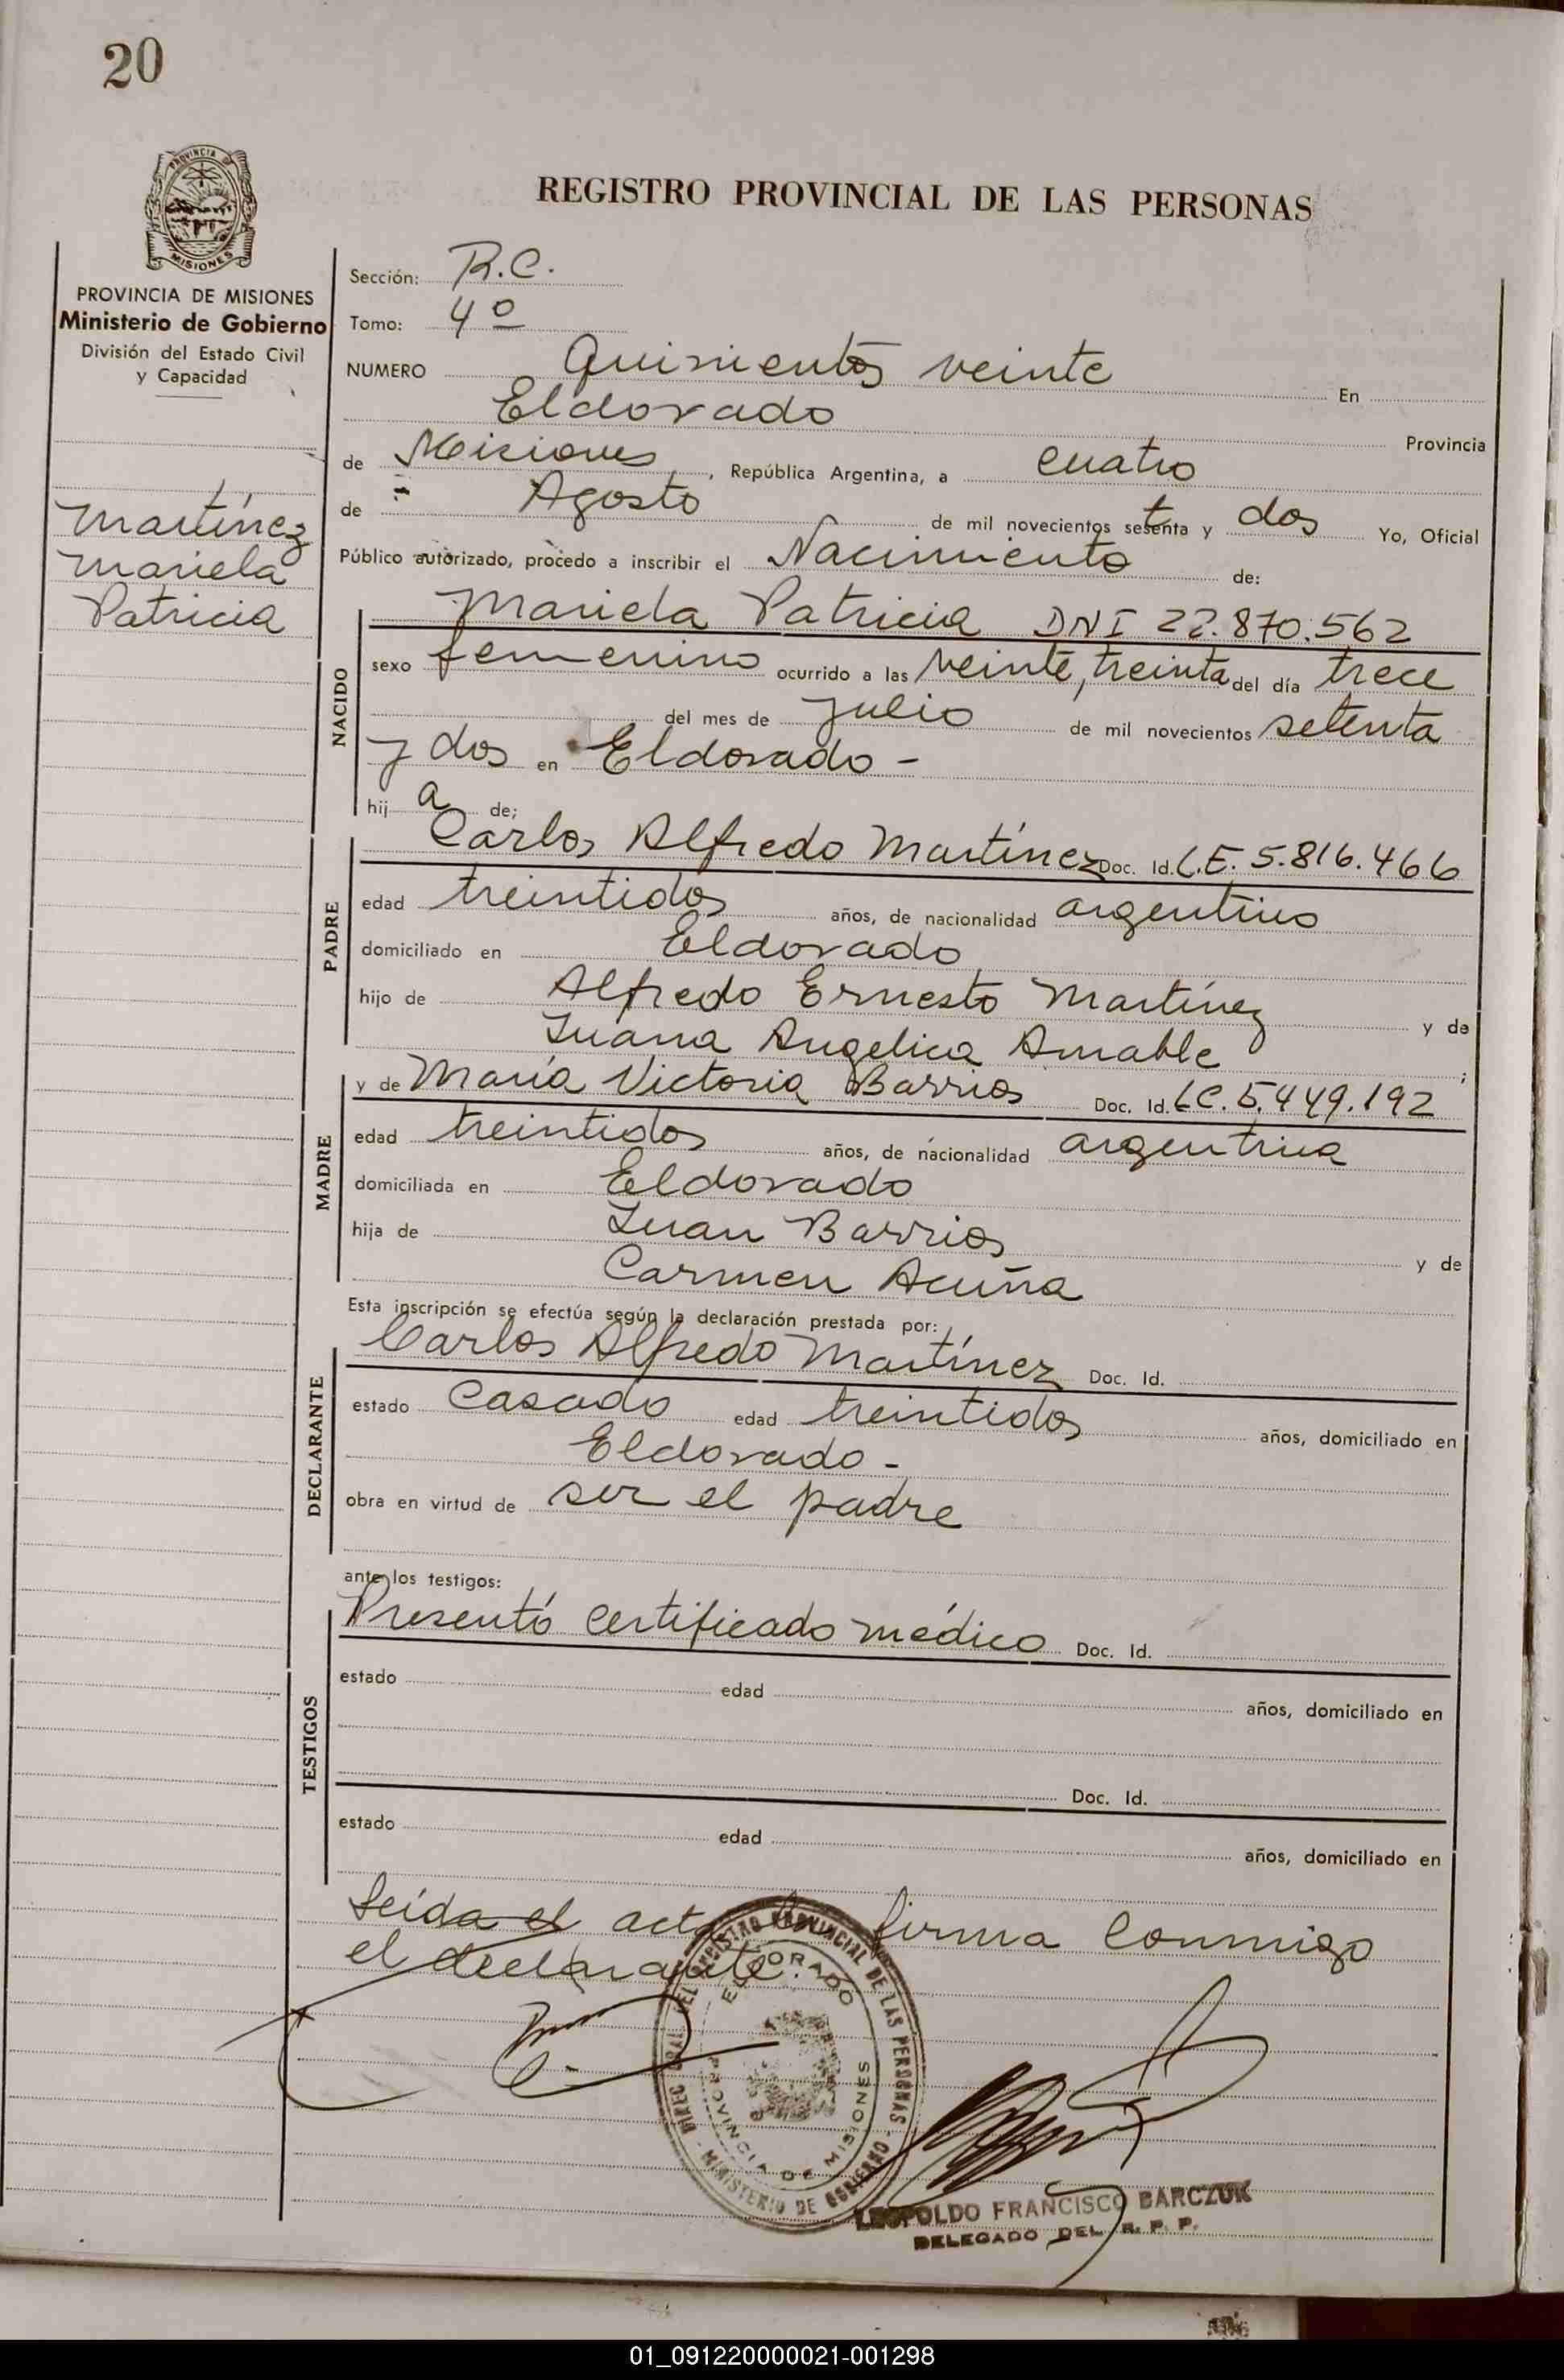 20
PROVINCIA DE MISIONES
PROVINCIA DE MISIONES
Ministerio de Gobierno
División del Estado Civil
y Capacidad
Martínez
Mariela
Patricia
REGISTRO PROVINCIAL DE LAS PERSONAS
Sección: R.C.
Tomo: 4º
NUMERO Quinientos veinte En
Eldorado Provincia
de Misiones, República Argentina, a cuatro
de Agosto de mil novecientos setenta y dos Yo, Oficial
Público autorizado, procedo a inscribir el Nacimiento de:
NACIDO
Mariela Patricia DNI 22.870.562
sexo femenino ocurrido a las veinte, treinta del día trece
del mes de Julio de mil novecientos setenta
y dos en Eldorado -
hij a de;
PADRE
Carlos Alfredo Martínez Doc. Id. L.E. 5.816.466
edad treintidos años, de nacionalidad argentino
domiciliado en Eldorado
hijo de Alfredo Ernesto Martínez y de
Juana Angelica Amable ;
MADRE
y de María Victoria Barrios Doc. Id. LC. 5.449.192
edad treintidos años, de nacionalidad argentina
domiciliada en Eldorado
hija de Juan Barrios y de
Carmen Acuña
Esta inscripción se efectúa según la declaración prestada por:
DECLARANTE
Carlos Alfredo Martínez Doc. Id.
estado Casado edad treintidos años, domiciliado en
Eldorado -
obra en virtud de ser el padre
ante los testigos:
TESTIGOS
Presentó certificado médico Doc. Id.
estado edad años, domiciliado en
Doc. Id.
estado edad años, domiciliado en
Leída el acta la firma conmigo
el declarante.
DIREC. GRAL. DEL REGISTRO PROVINCIAL DE LAS PERSONAS - MINISTERIO DE GOBIERNO -
ELDORADO
PROVINCIA DE MISIONES
LEOPOLDO FRANCISCO BARCZUK
DELEGADO DEL R. P. P.
01_091220000021-001298